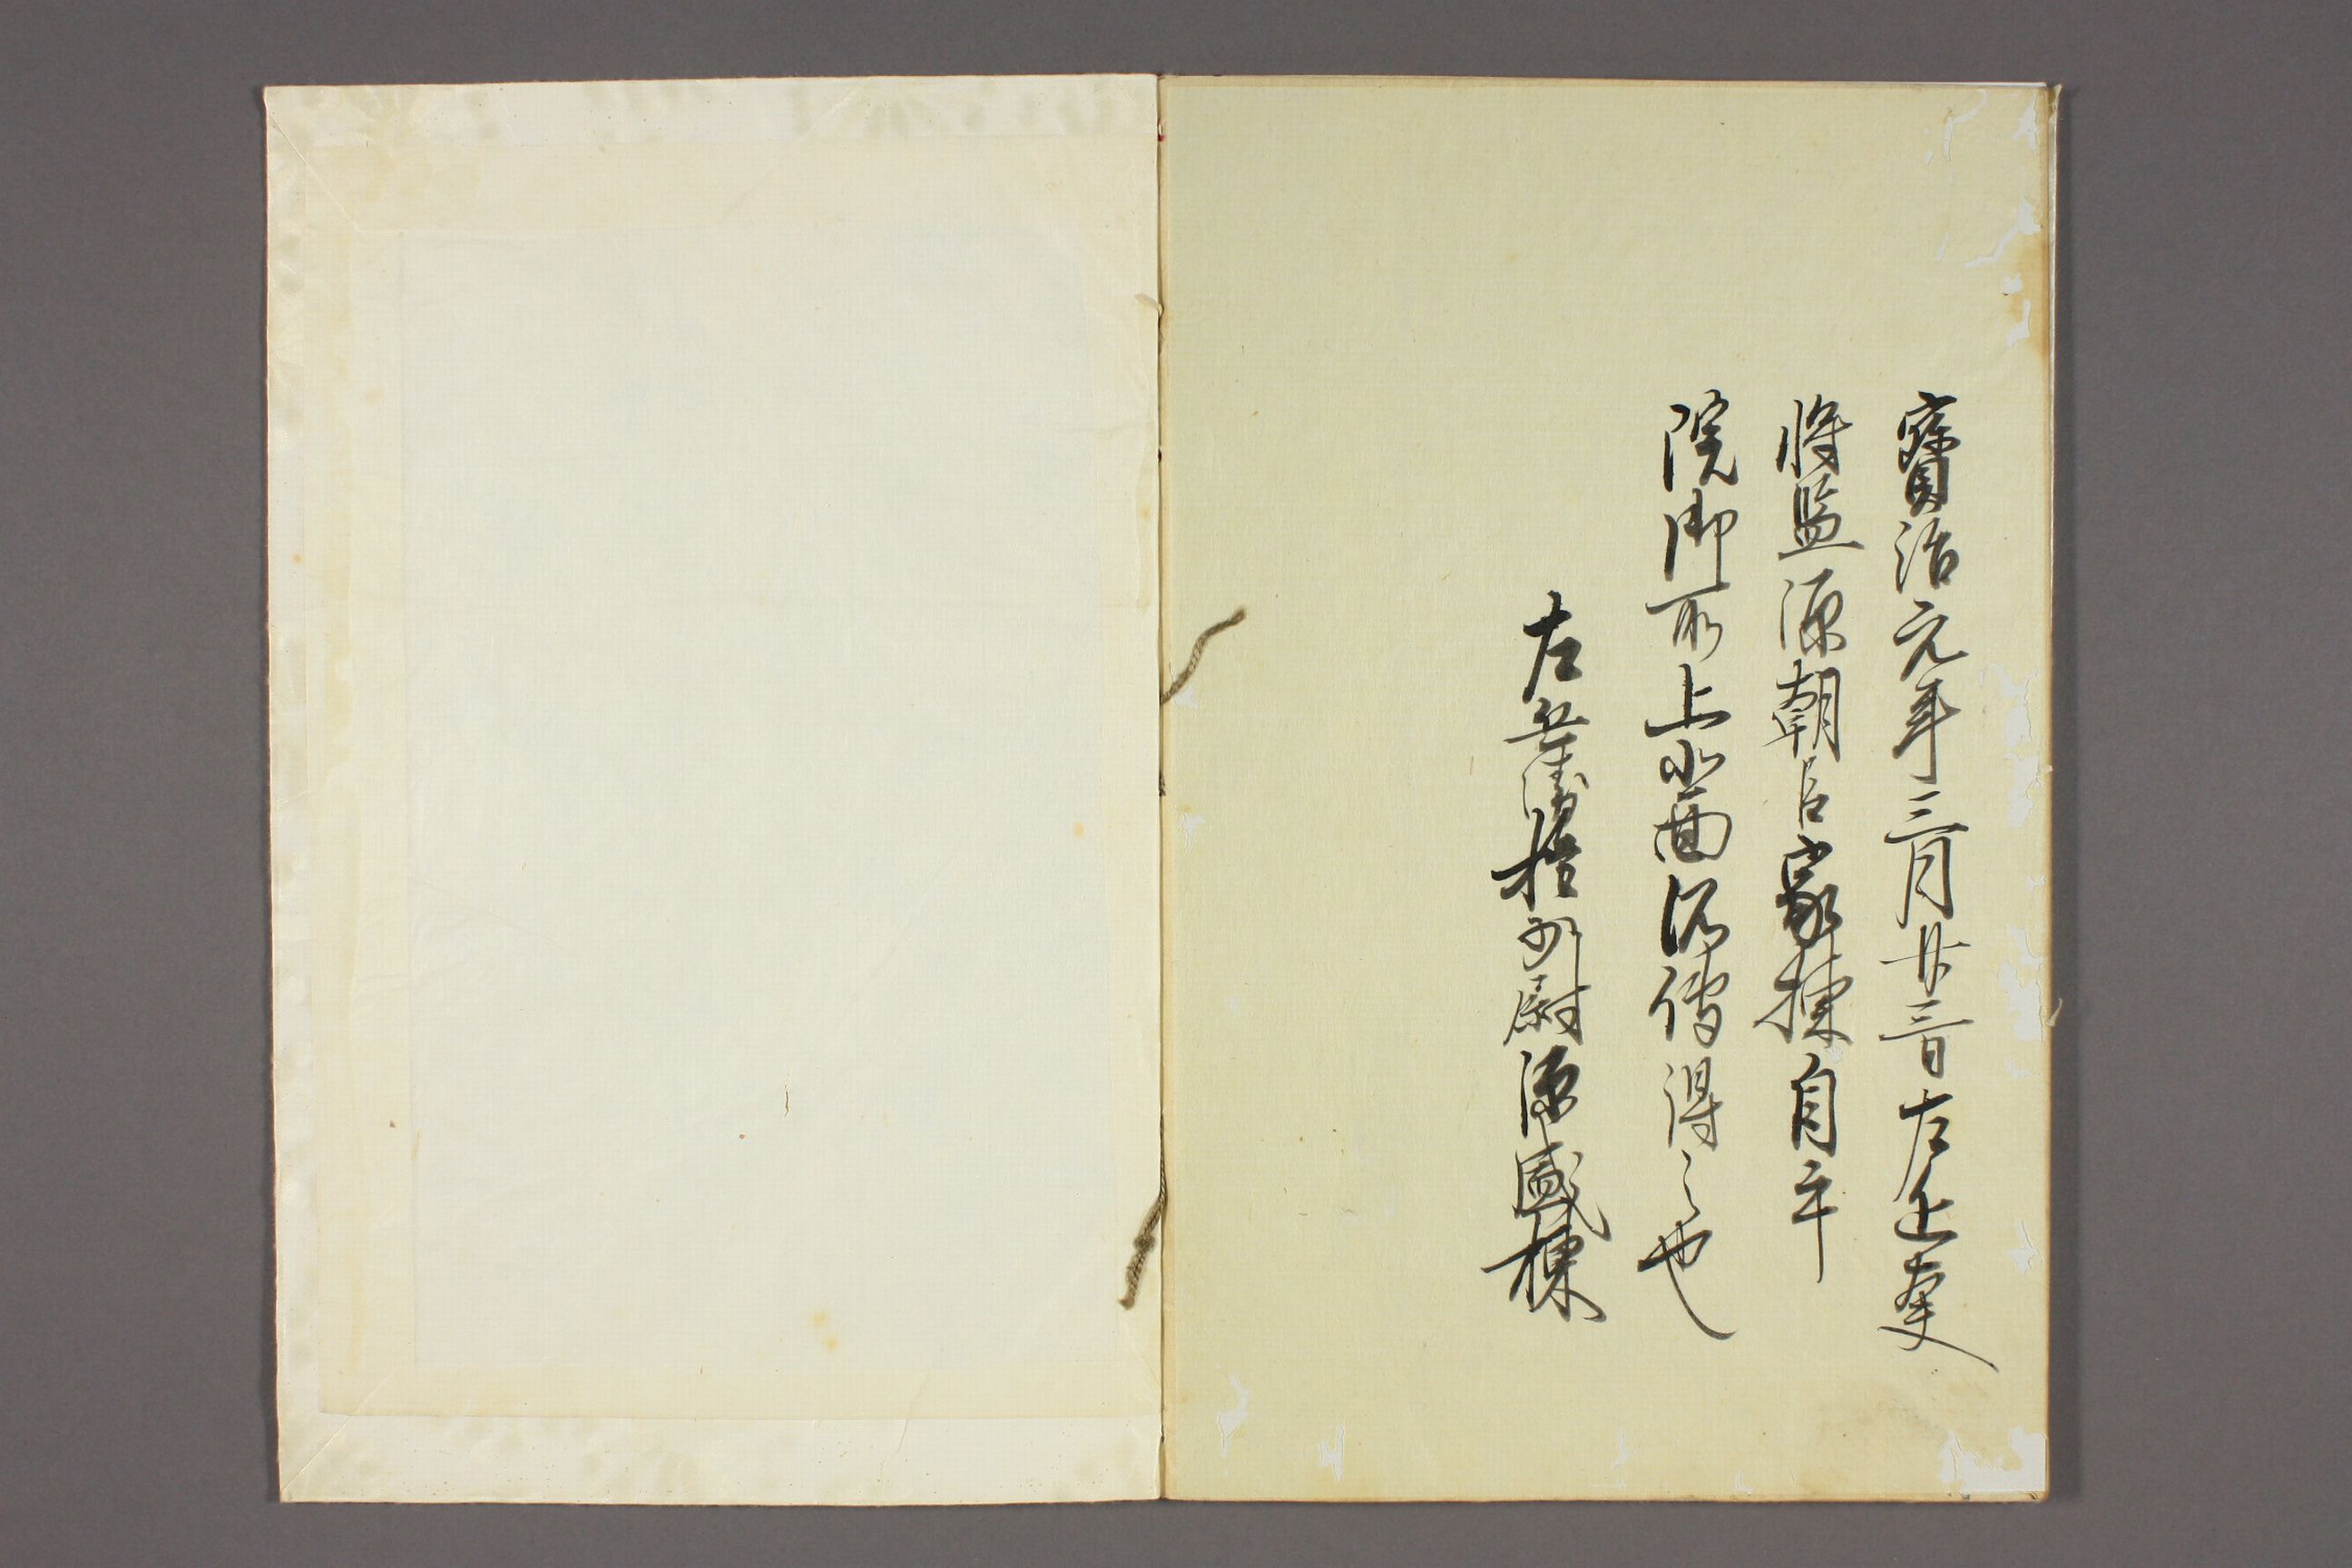 寶治元年三月廿三日左近大夫
将監源朝臣家棟自
院御所上北面傳得之也
左兵衛権少尉源盛棟